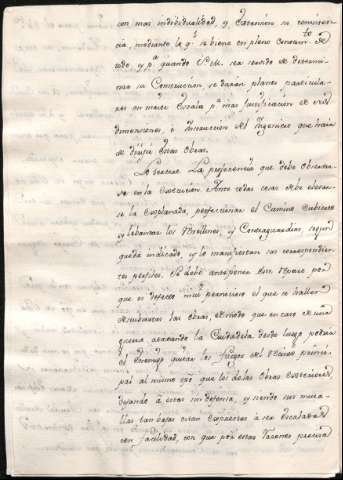 con mas individualidad y extension se
cia, mediante la qͤ se viene en pleno conocimto de
todo, y pa quando S. M. sea servido de determi-
nar su Construcion, se darán planos particula-
res en maior Escala pa mas justificacion de sus
dimensiones, è Instruccion del Ingeniero que haia
de dirigir dhas obras.
Lo tercero. La preferencia que debe observar
se en la execucion Antte todas cosas debe elevar-
se la Explanada, perfeccionar el Camino cubierto
y lebantar los Rebellines, y Contraguardias, segun
queda indicado, y lo manifiestan sus correspondien
tes perfiles. Se debe anteponer este trabajo por
que es defecto mui perniciozo el que se hallen
descubiertas las obras, de modo que en caso de una
guerra atacando la Ciudadela desde luego podrá
el Enemigo quitar los fuegos del Recinto princi-
pal al mismo tpo que los de las obras exteriores
dejando à estas indefensa, y siendo sus mura-
llas tan bajas estan expuestas à ser escaladas
con facilidad, con que por estas razones precisa